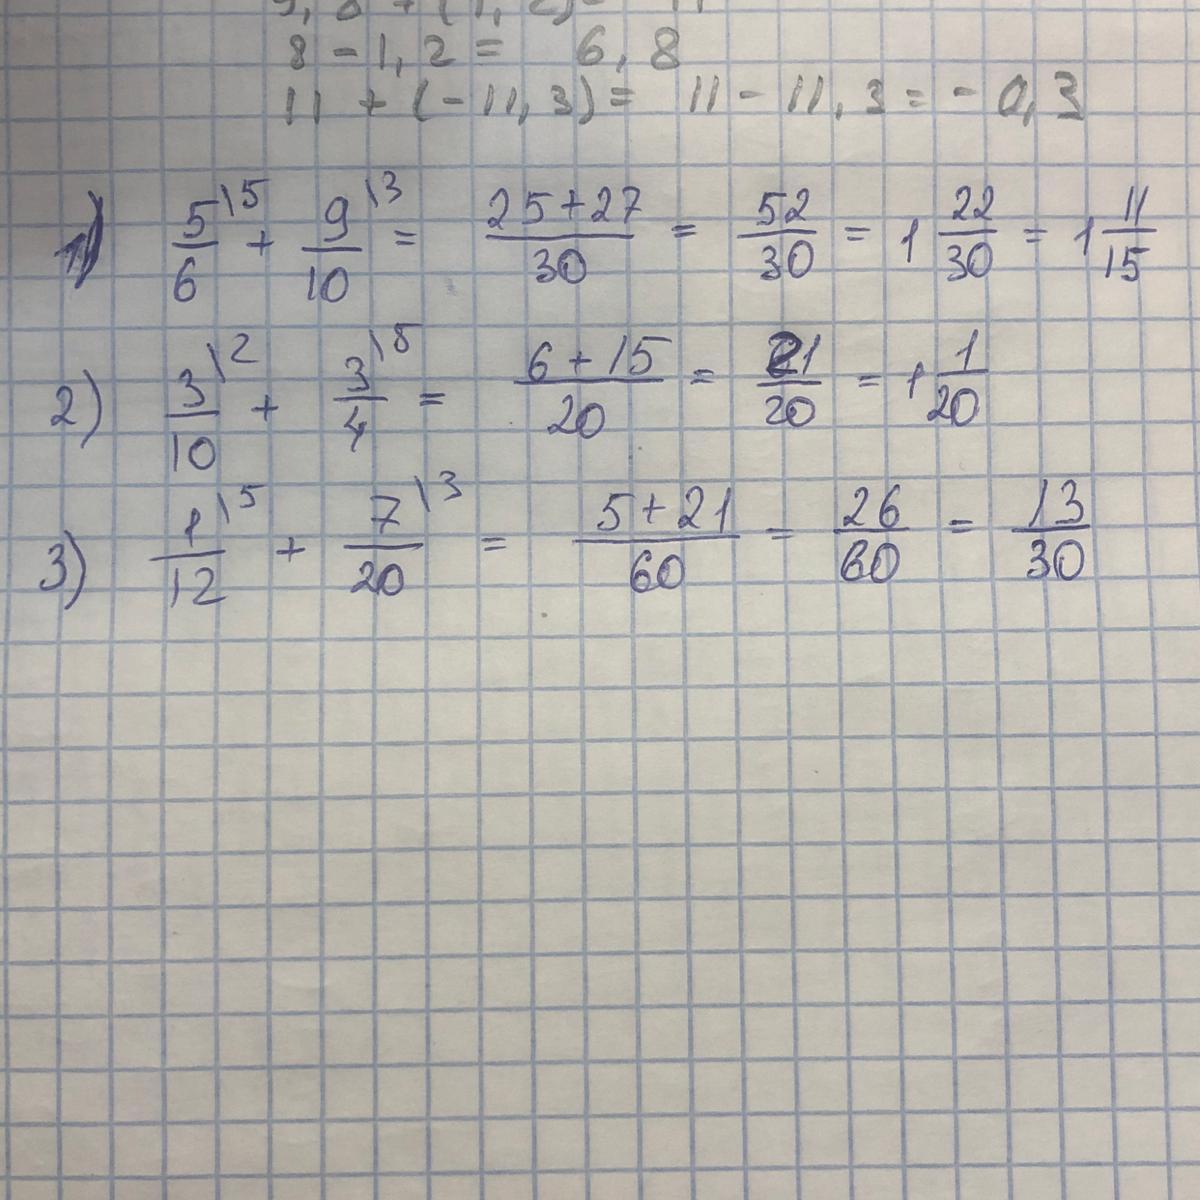 8 - 1,2 = 6,8
11 + (-11,3) = 11 - 11,3 = -0,3
1) 5\5/6 + 9\3/10 = 25+27/30 = 52/30 = 1 22/30 = 1 11/15
2) 3\2/10 + 3\5/4 = 6+15/20 = 21/20 = 1 1/20
3) 1\5/12 + 7\3/20 = 5+21/60 = 26/60 = 13/30